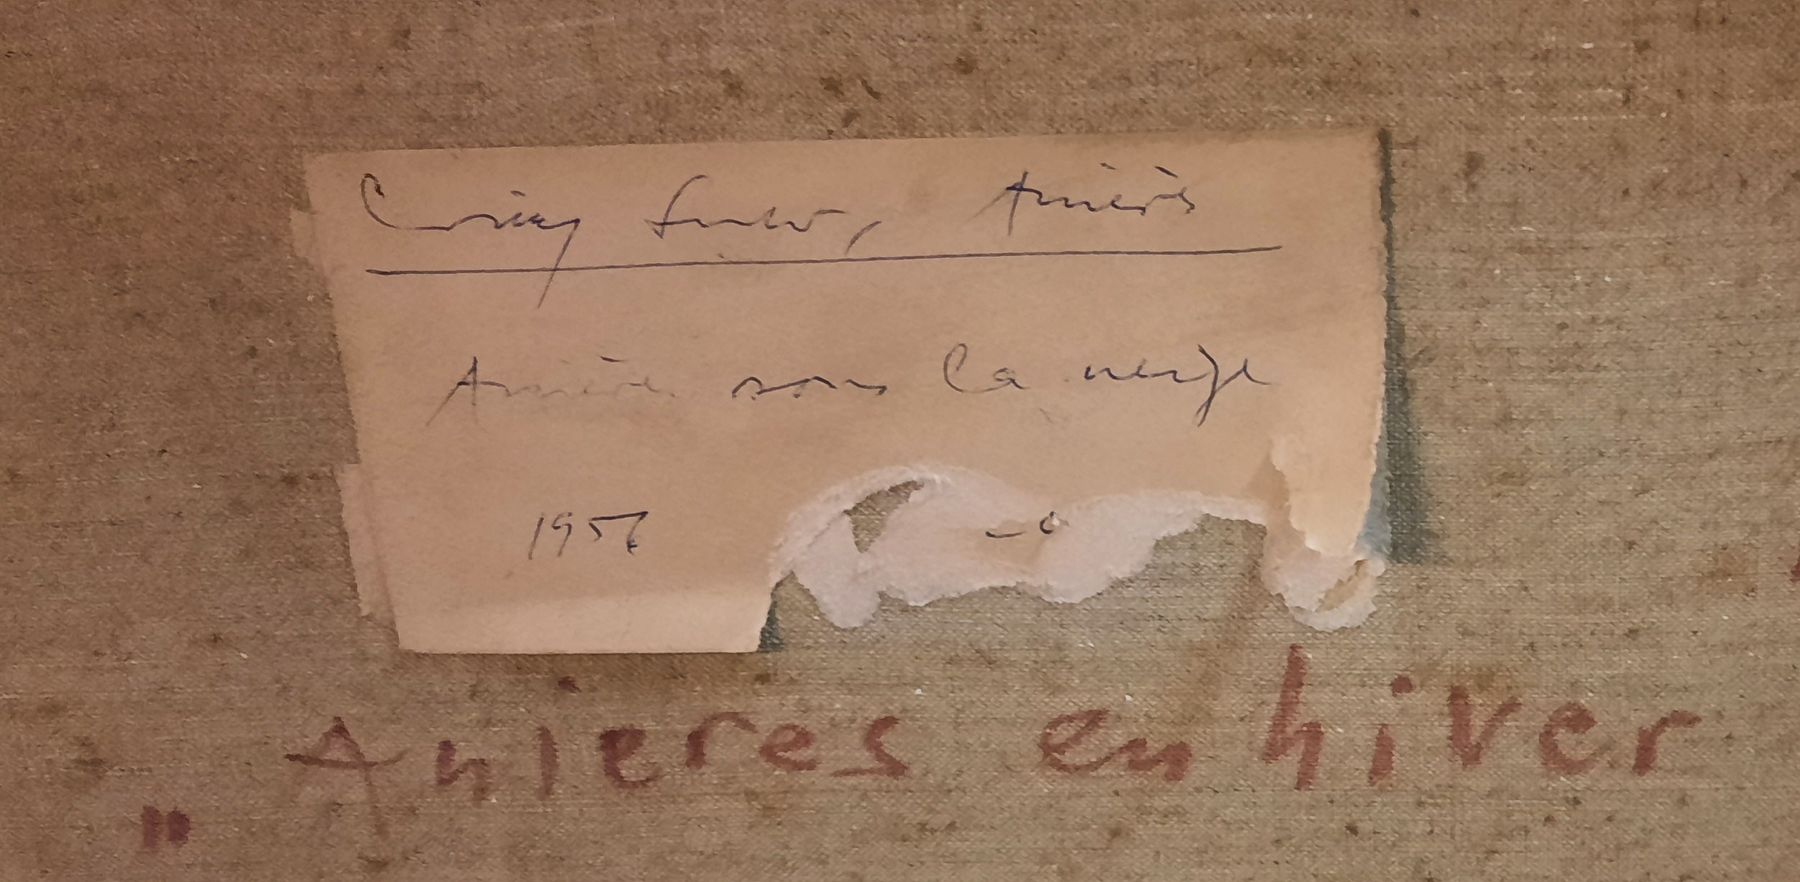 Conrey Suter, Anières
Anières sous la neige
1957
„ Anieres en hiver